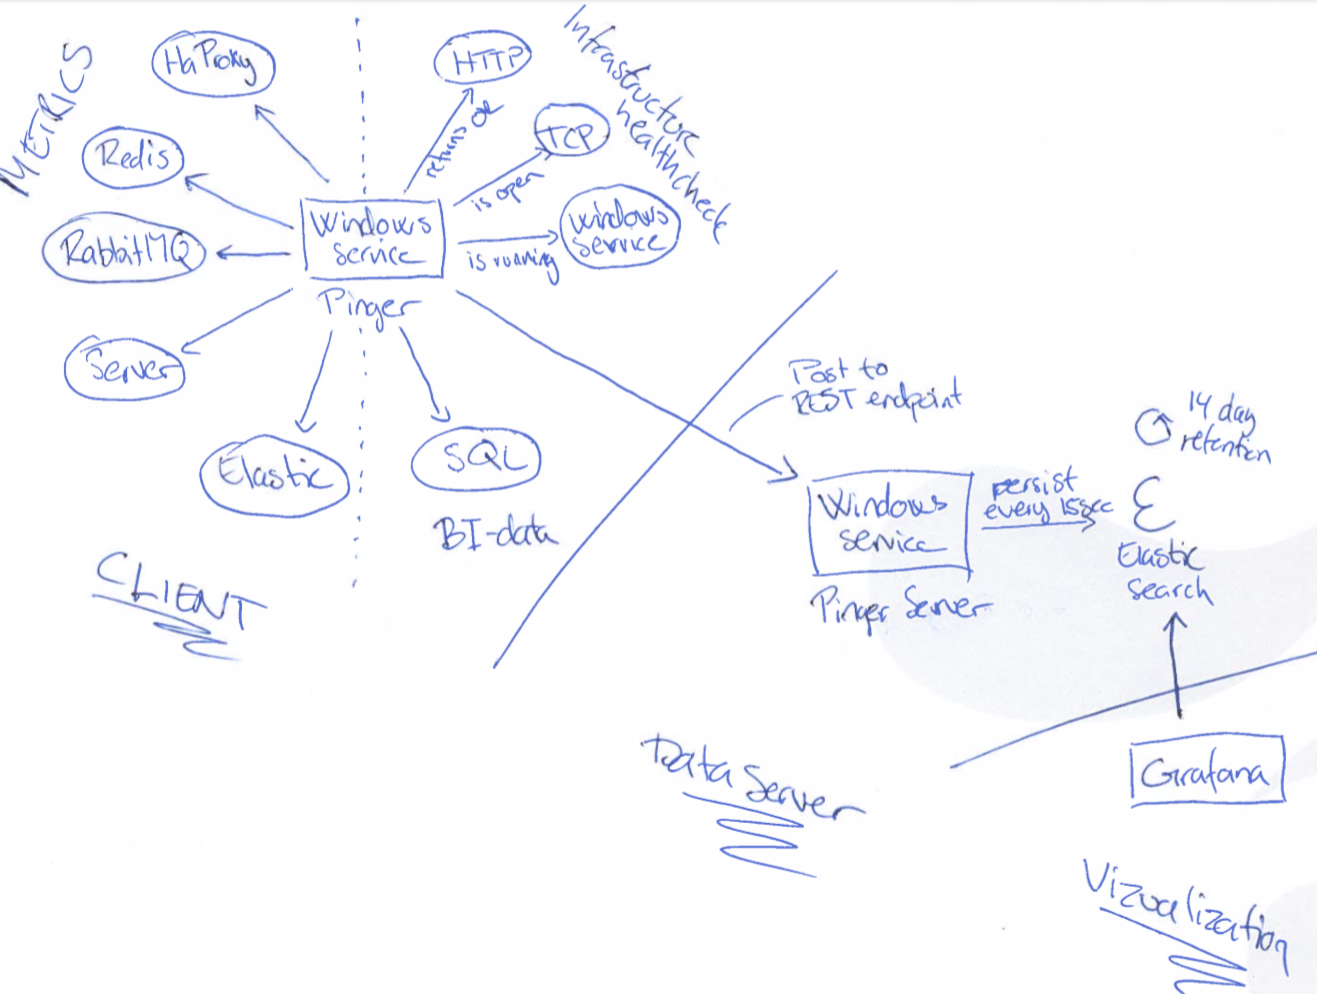 METRICS
HaProxy
Redis
RabbitMQ
Server
Elastic
SQL
BI-data
Windows
service
Pinger
HTTP
returns OK
TCP
is open
windows
service
is running
Infrastructure
healthcheck
CLIENT
Post to
REST endpoint
Windows
service
Pinger Server
persist
every 15sec
14 day
retention
Elastic
search
Data Server
Grafana
Vizualization